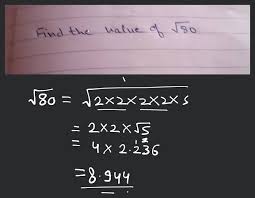 Find the value of √80
√80 = √2×2×2×2×5
= 2×2×√5
= 4×2.236
=8.944